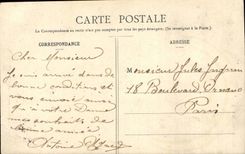 CARTE POSTALE
La Correspondance au recto n'est pas acceptée par tous les pays étrangers. (Se renseigner à la Poste.)
CORRESPONDANCE
ADRESSE
Cher Monsieur
Je suis arrivé dans de
bonne conditions et
vous envoie
meilleurs souhaits de
bonne année
Antoine
Monsieur Jules
18 Boulevard Ornano
Paris